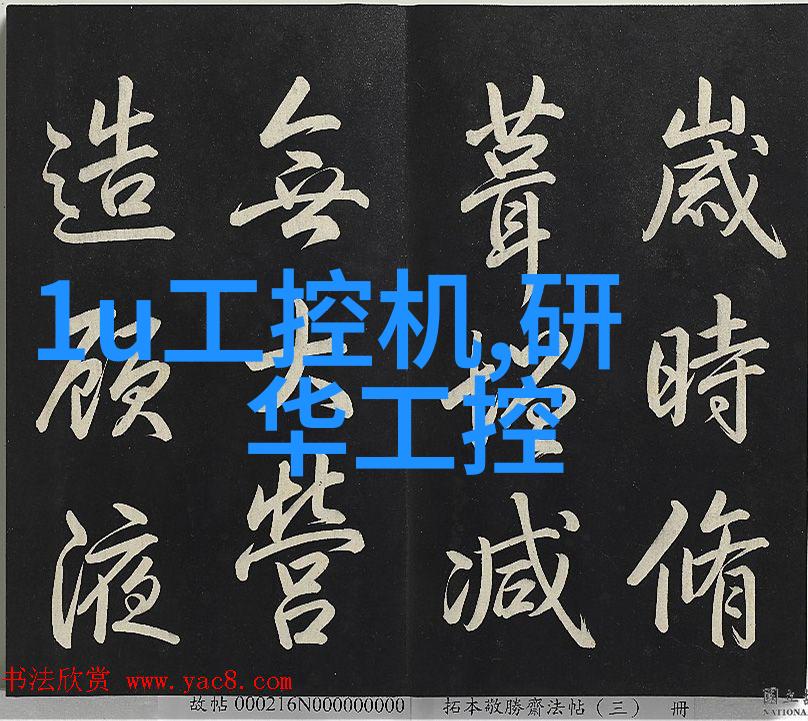 歲時脩
葺減
無大營
造顧液
1u工控机,研
华工控
书法欣赏 www.yac8.com
故帖 000216N000000000 拓本敬勝齋法帖（三） 冊
國立
NATIONA